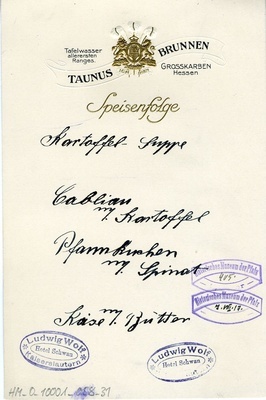 Tafelwasser
allerersten
Ranges.
TAUNUS BRUNNEN
GROSSKARBEN
Hessen
Speisenfolge
Kartoffel-Suppe
Cabliau
m/ Kartoffel
Pfannkuchen
m/ Spinat
Käse u. Butter
Historisches Museum der Pfalz
Ludwig Wolf
Hotel Schwan
Kaiserslautern
Ludwig Wolf
Hotel Schwan